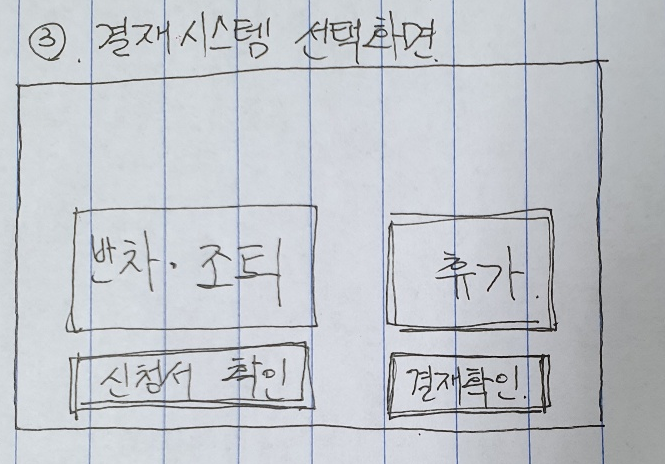 ③. 결재시스템 선택화면
반차·조퇴 휴가.
신청서 확인 결재확인.